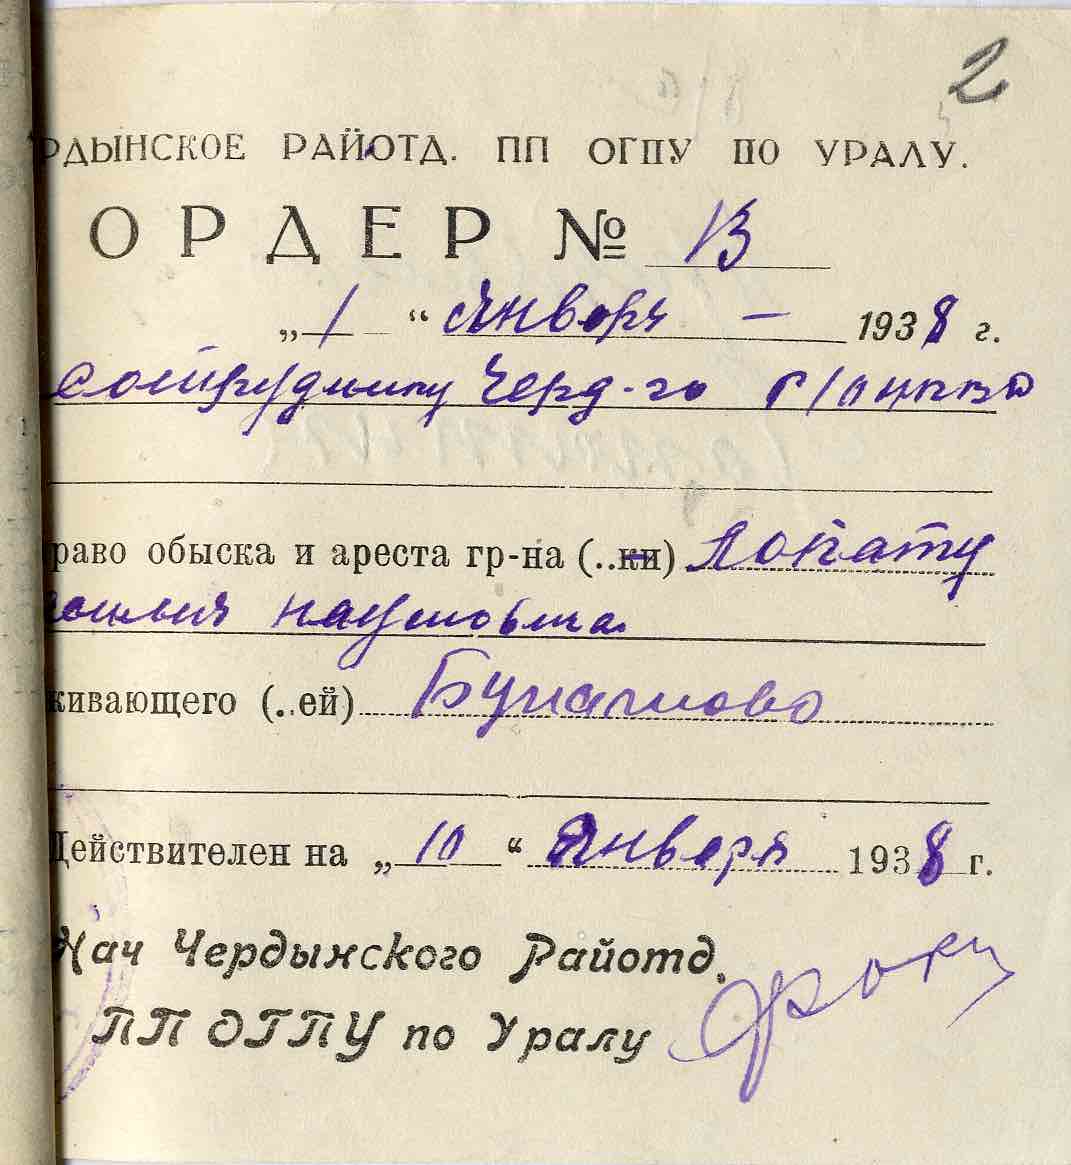 2
РДЫНСКОЕ РАЙОТД. ПП ОГПУ ПО УРАЛУ.
ОРДЕР № 13
„1“ Января - 1938 г.
сотруднику Черд-го
раво обыска и ареста гр-на (..ки) Лопату
наумовича
живающего (..ей) Бумажново
Действителен на „10“ Января 1938 г.
Нач Чердынского Райотд.
ПП ОГПУ по Уралу